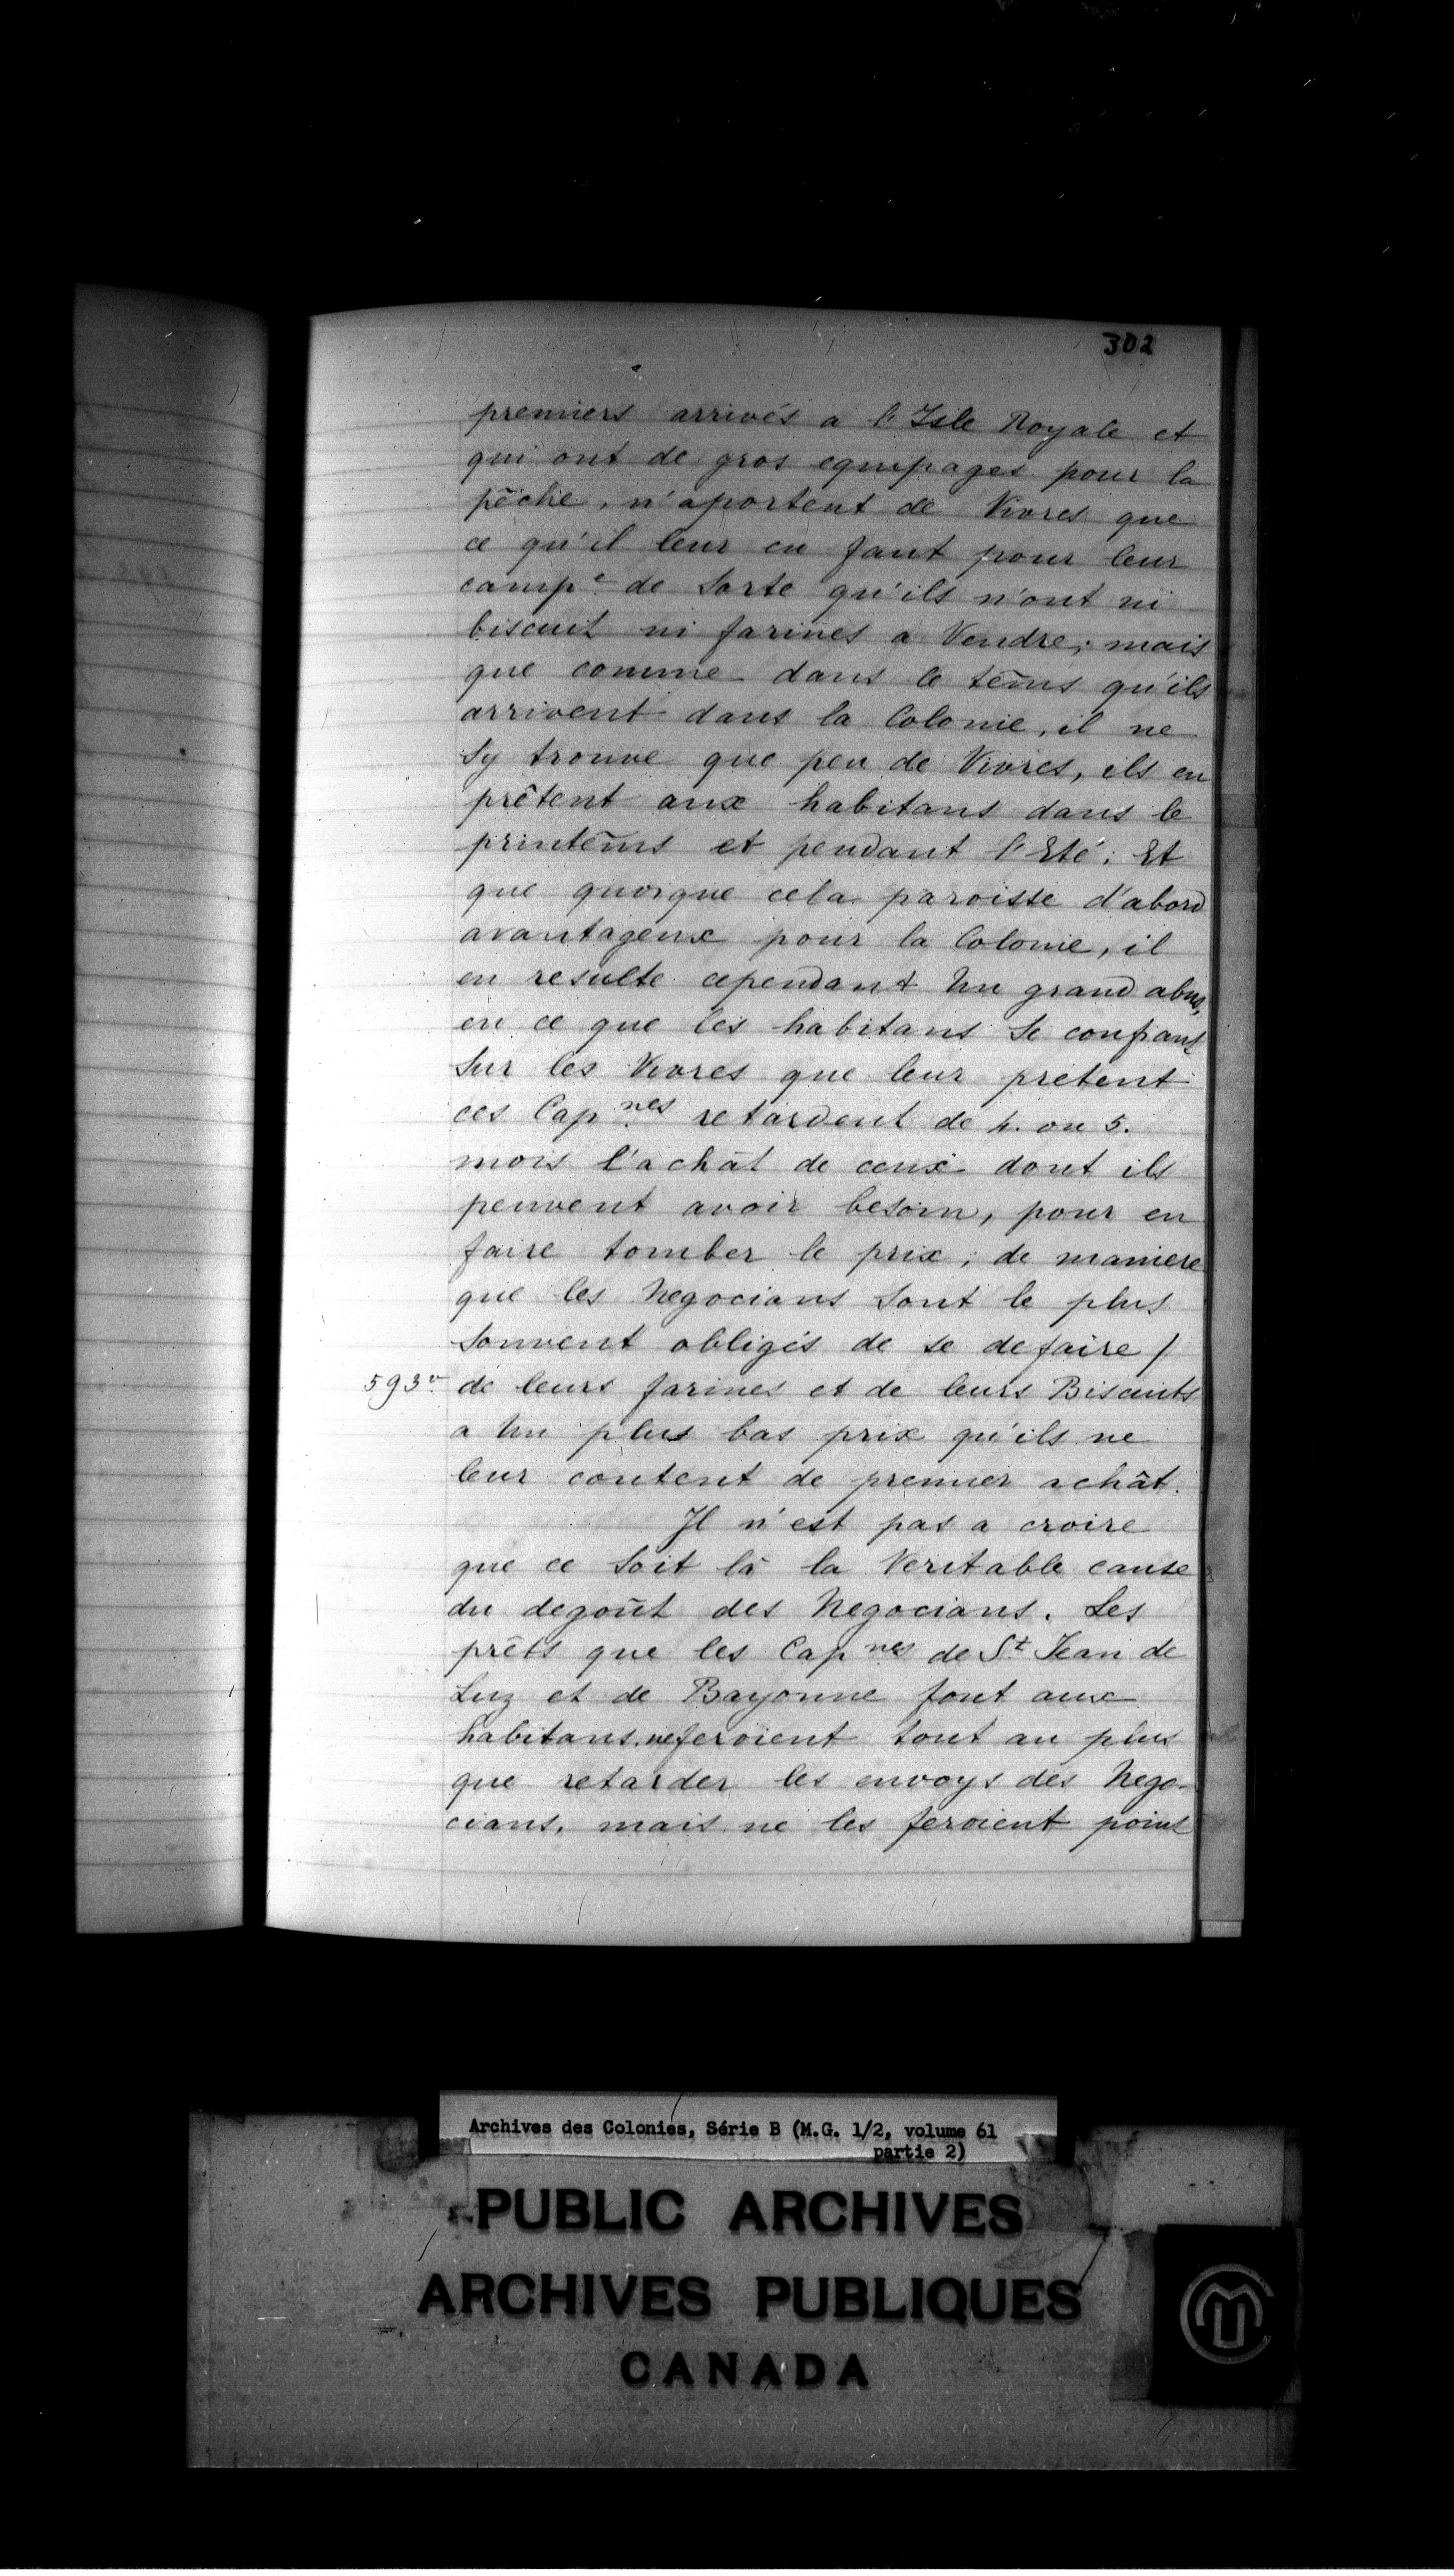 302
premiers arrivés a l'Isle Royale et
qui ont de gros equipages pour la
pêche, n'aportent de Vivres que
ce qu'il leur en faut pour leur
camp.e de Sorte qu'ils n'ont ni
biscuit ni farines a Vendre; mais
que comme dans le têms qu'ils
arrivent dans la Colonie, il ne
Sy trouve que peu de Vivres, ils en
prêtent aux habitans dans le
printêms et pendant l'Eté; Et
que quoique cela paroisse d'abord
avantageux pour la Colonie, il
en resulte cependant Un grand abus,
en ce que les habitans Se confians
Sur les Vivres que leur pretent
ces Cap.nes retardent de 4. ou 5.
mois l'achât de ceux dont ils
peuvent avoir besoin, pour en
faire tomber le prix; de maniere
que les Negocians Sont le plus
Souvent obligés de se defaire /
593v. de leurs farines et de leurs Biscuits
a Un plus bas prix qu'ils ne
leur coutent de premier achât.
Il n'est pas a croire
que ce Soit là la Veritable cause
du degoût des Negocians. Les
prêts que les Capnes de St Jean de
Luz et de Bayonne font aux
habitans, ne feroient tout au plus
que retarder les envoys des Nego-
cians, mais ne les feroient point
Archives des Colonies, Série B (M.G. 1/2, volume 61
partie 2)
PUBLIC ARCHIVES
ARCHIVES PUBLIQUES
CANADA